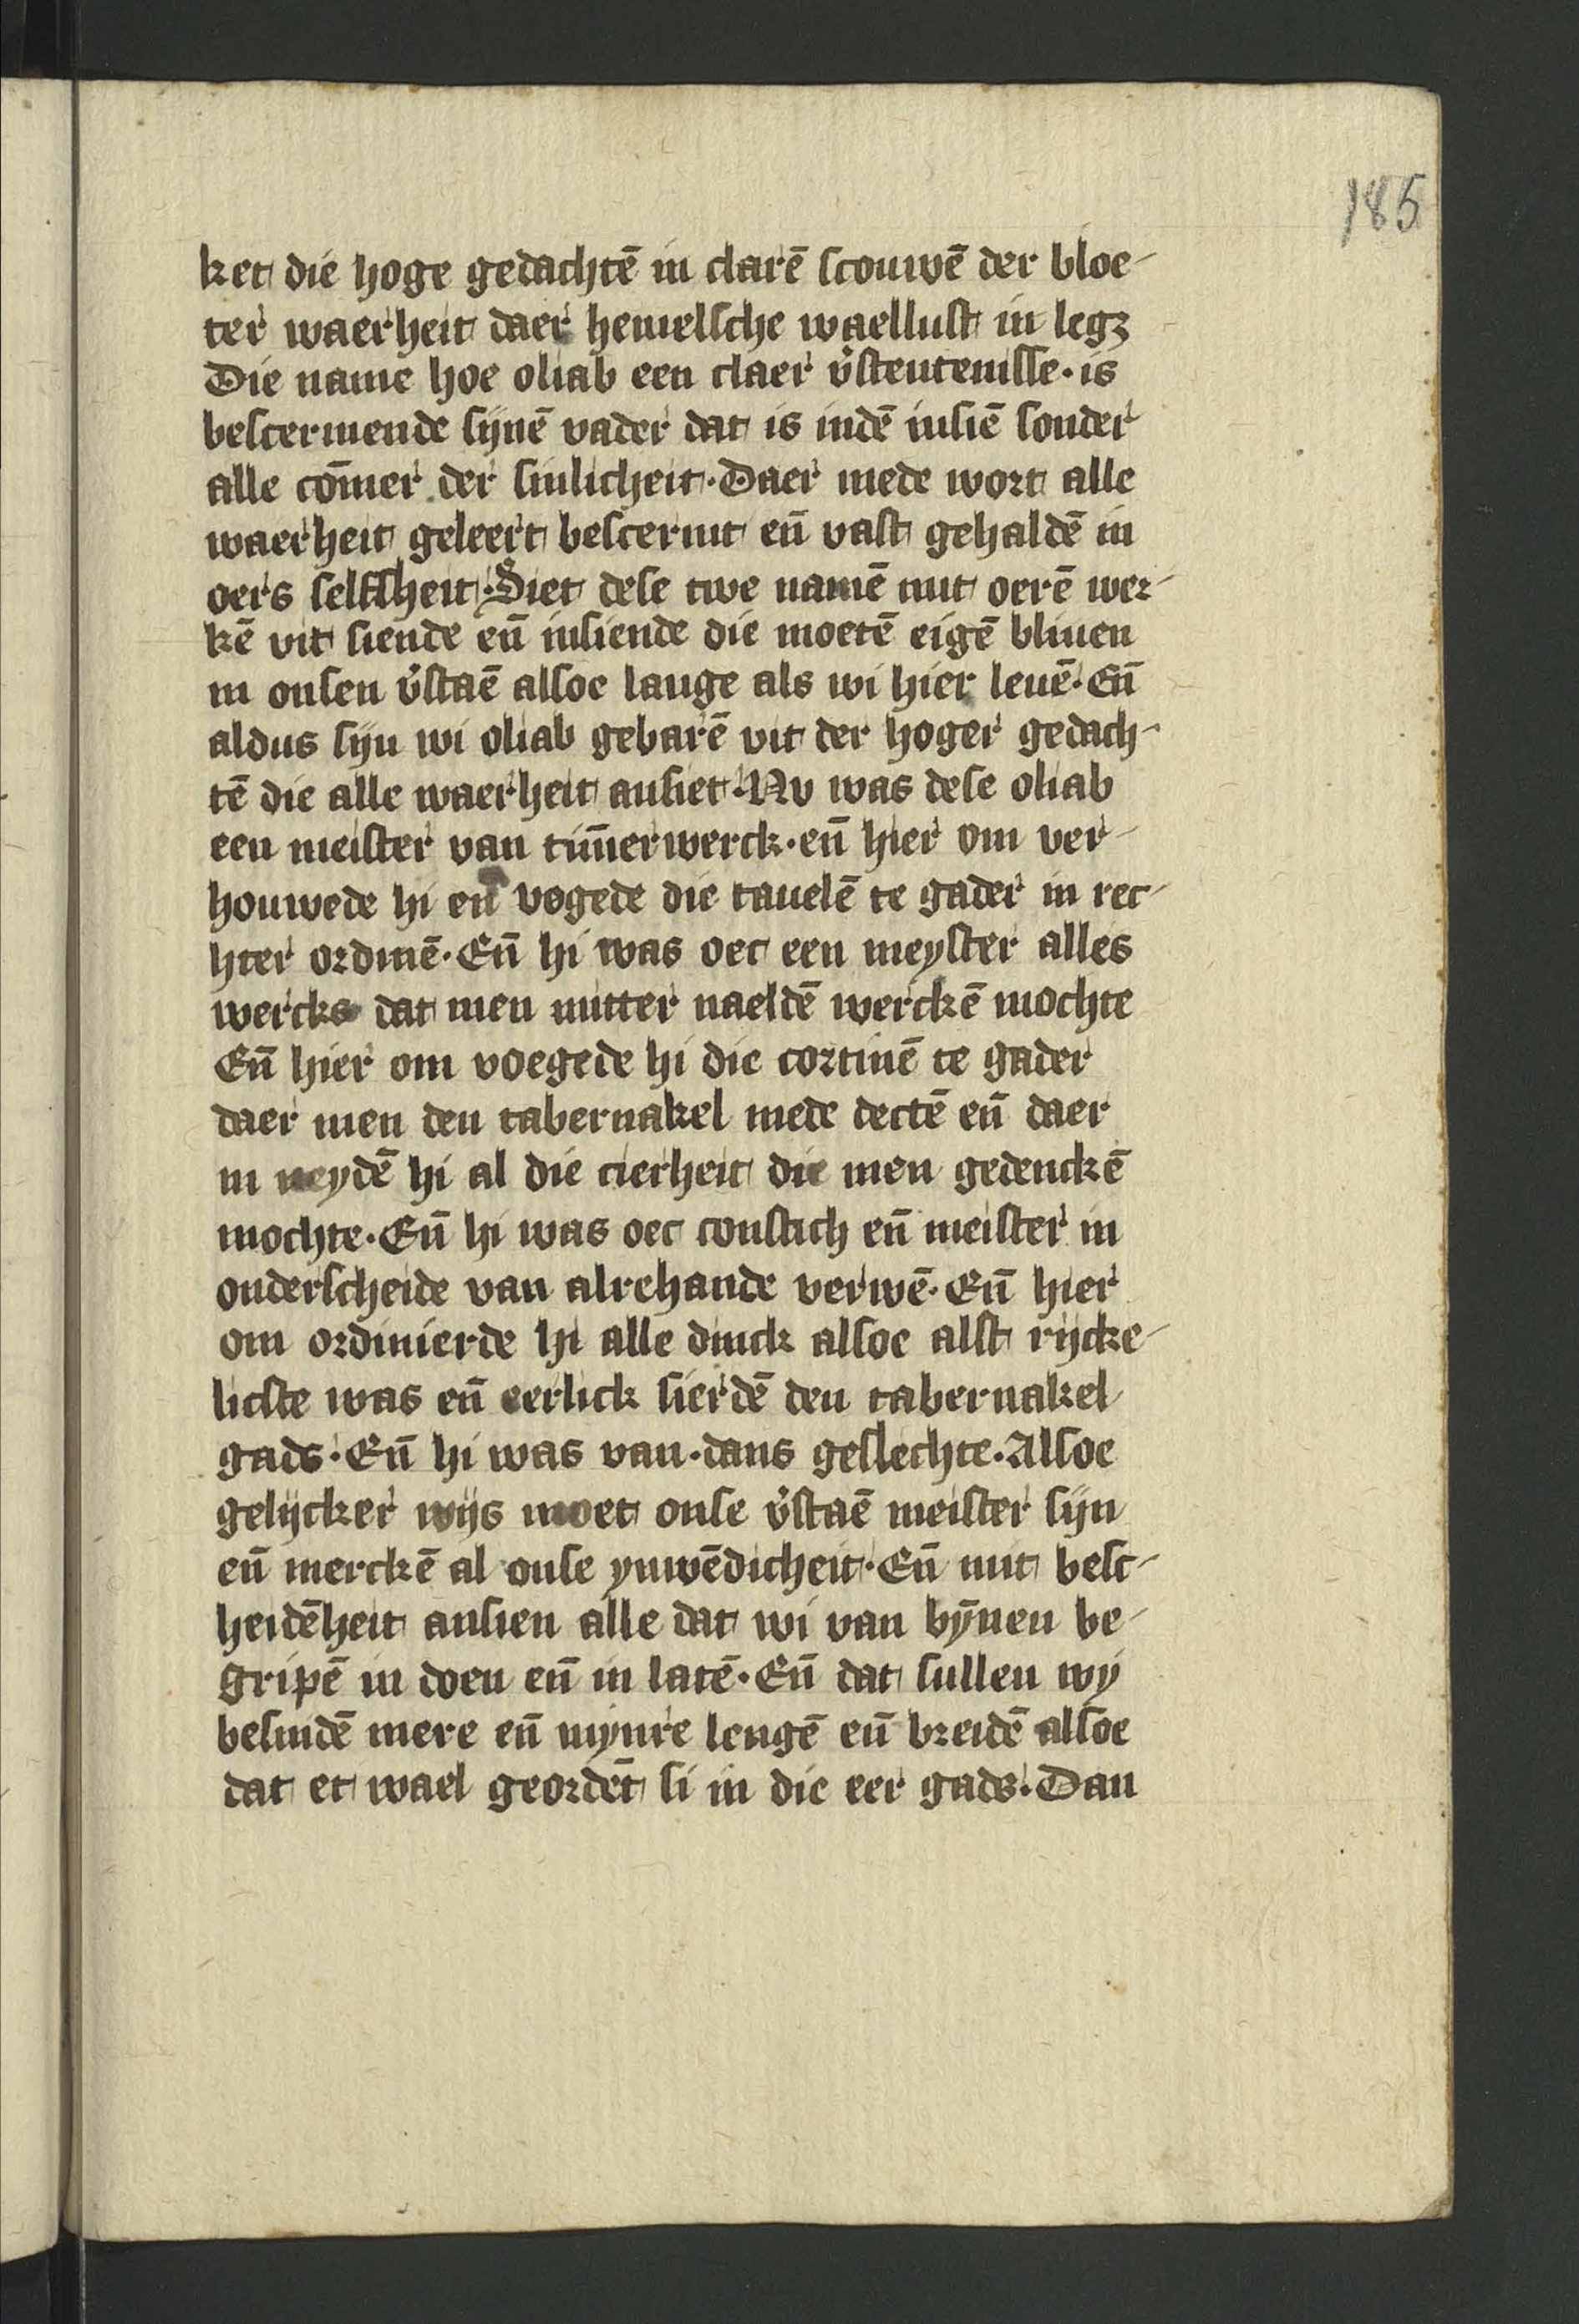 185
ket die hoge gedachtē in clarē scouwē der bloe-
ter waerheit daer hemelsche waellust in legꝫ
Die name hoe oliab een claer v̓stentenisse · is
bescermende sijnē vader dat is indē insiē sonder
alle com̄er der sinlicheit · Daer mede wort alle
waerheit geleert bescermt en̄ vast gehaldē in
oers selfsheit · Siet dese twe namē mit oerē wer-
kē vit siende en̄ insiende die moetē eigē bliuen
in onsen v̓staē alsoe lange als wi hier leuē · En̄
aldus sijn wi oliab gebarē vit der hoger gedach-
tē die alle waerheit ansiet · Nv was dese oliab
een meister van tim̄erwerck · en̄ hier om ver-
houwede hi en̄ vogede die tauelē te gader in rec-
hter ordinē · En̄ hi was oec een meyster alles
wercks dat men mitter naeldē werckē mochte
En̄ hier om voegede hi die cortinē te gader
daer men den tabernakel mede dectē en̄ daer
in neydē hi al die cierheit die men gedenckē
mochte · En̄ hi was oec constich en̄ meister in
onderscheide van alrehande verwē · En̄ hier
om ordinierde hi alle dinck alsoe alst rijcke-
licste was en̄ eerlick sierdē den tabernakel
gads · En̄ hi was van · dans geslechte · Alsoe
gelijcker wijs moet onse v̓staē meister sijn
en̄ merckē al onse ynwēdicheit · En̄ mit besc-
heidēheit ansien alle dat wi van bȳnen be-
gripē in doen en̄ in latē · En̄ dat sullen wij
besindē mere en̄ mynre lengē en̄ breidē alsoe
dat et wael geordēt si in die eer gads · Dan